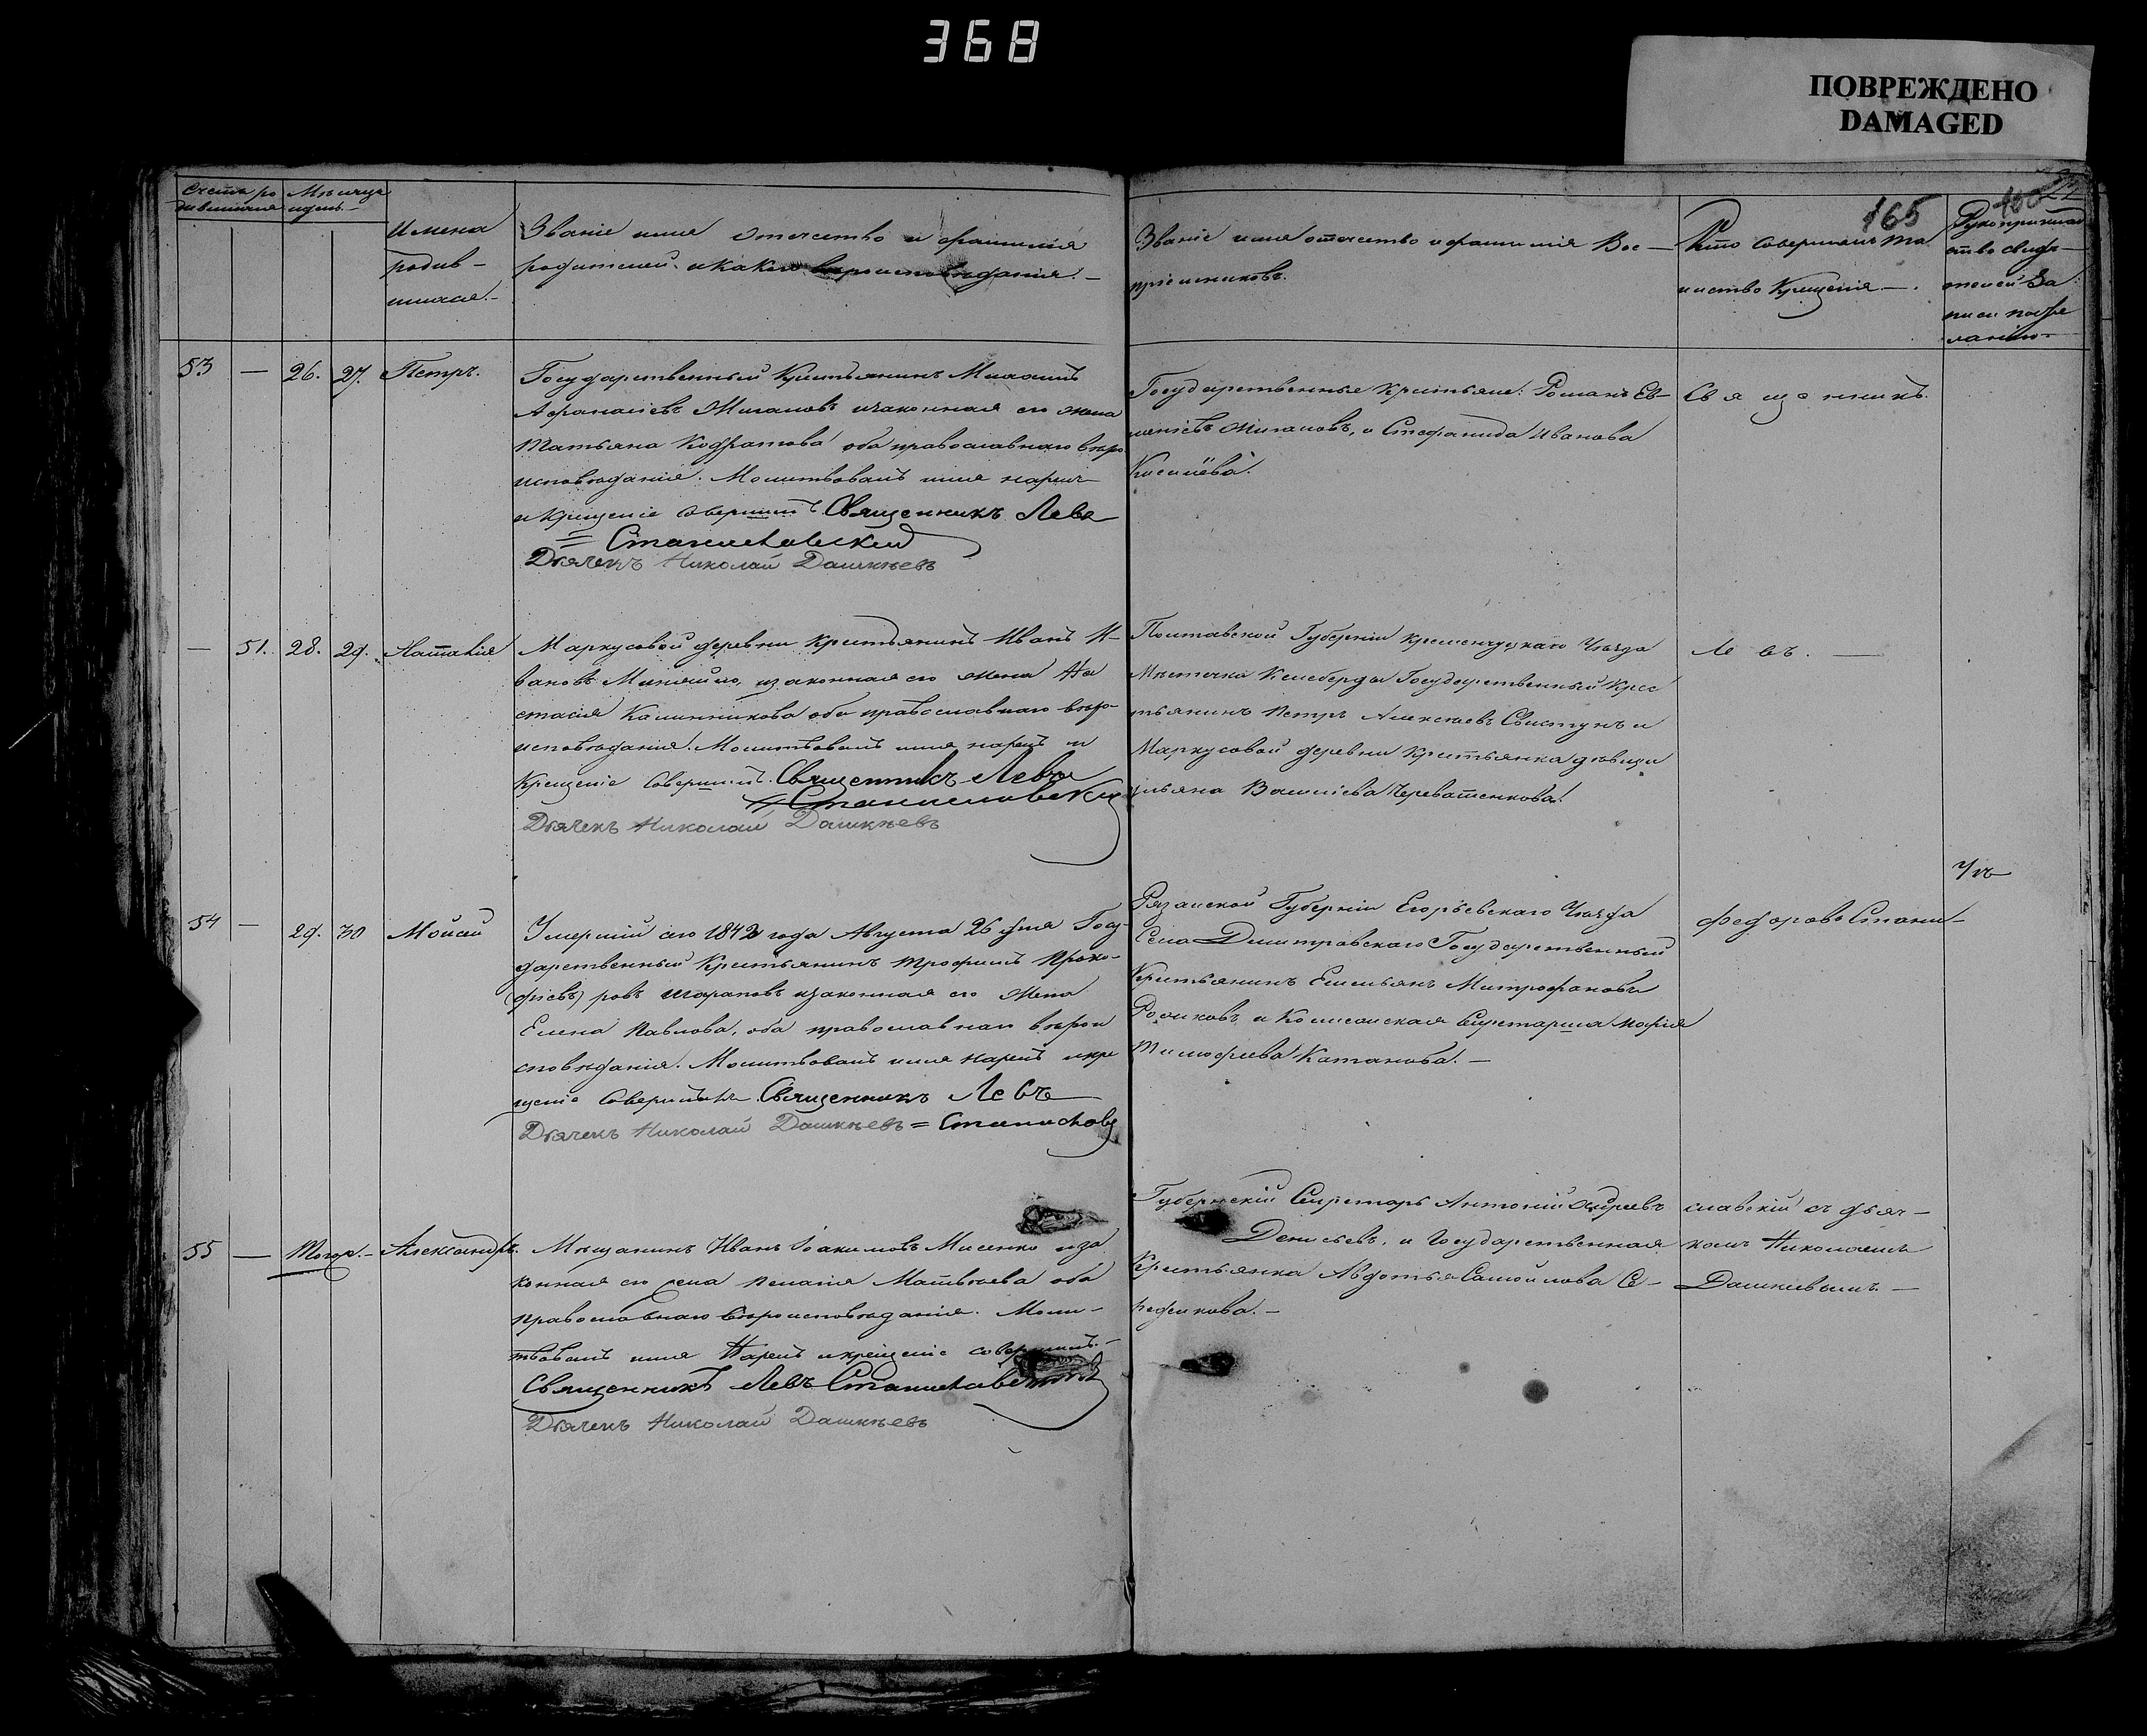 368
ПОВРЕЖДЕНО
DAMAGED
Счетъ ро
дившихся
Мѣсяцъ
и день.
Имена
родив-
шихся.-
Званіе имя отечество и фамилія
родителей и какого вѣроисповѣданія.-
Званіе имя отечество и фамилія Вос-
пріемниковъ.
165
Кто совершалъ та
инство Крещенія.-
53 — 26. 27. Петръ.
Государственный Крестьянинъ
и законная его жена
Татьяна оба православнаго вѣро
исповѣданія. Молитвовалъ имя нарекъ
и крещеніе совершилъ Священникъ Левъ
= Станиславскій
Дьячекъ Николай Дашкѣевъ
Государственные Крестьяне: Романъ
и Стефанида Иванова
Священникъ
— 51. 28. 29. Наталія
Маркусовой деревни Крестьянинъ Иванъ И-
вановъ и законная его жена На
стасія Калинникова оба православнаго вѣро-
исповѣданія. Молитвовалъ имя нарекъ и
Крещеніе совершилъ. Священникъ Левъ
Станиславскій
Дьячекъ Николай Дашкѣевъ
Полтавской Губерніи Кременчугскаго Уѣзда
Мѣстечка Келеберды Государственный Крес
тьянинъ Петръ Алексѣевъ Свистунъ и
Маркусовой деревни Крестьянка дѣвица
ульяна
Левъ. —
54 — 29. 30 Моисей
Умершій сего 1842 года Августа 26 дня Госу-
дарственный Крестьянинъ Трофимъ Проко-
фіевъ и законная его жена
Елена Павлова, оба православнаго вѣрои
сповѣданія. Молитвовалъ имя нарекъ и кре
щеніе совершилъ Священникъ Левъ
Дьячекъ Николай Дашкѣевъ = Станиславс
Рязанской Губерніи Егорьевскаго Уѣзда
Села Димитровскаго Государственный
Крестьянинъ Емельянъ Митрофановъ
и Секретарша Марія
Тимофѣева Катанова. —
Федоровъ Стани-
55 — Тогож.- Александръ.
Мѣщанинъ Иванъ Іоакимовъ Мисенко и за
конная его жена Пелагія Матвѣева оба
православнаго вѣроисповѣданія. Моли-
твовалъ имя Нарекъ и крещеніе совершилъ.-
Священникъ Левъ Станиславскій
Дьячекъ Николай Дашкѣевъ
Губернскій Секретарь Антоній Андреевъ
Денисьевъ, и Государственная
Крестьянка Авдотья Самойлова Се-
редикова.-
славскій съ дьяч-
комъ Николаемъ
Дашкіевымъ. —